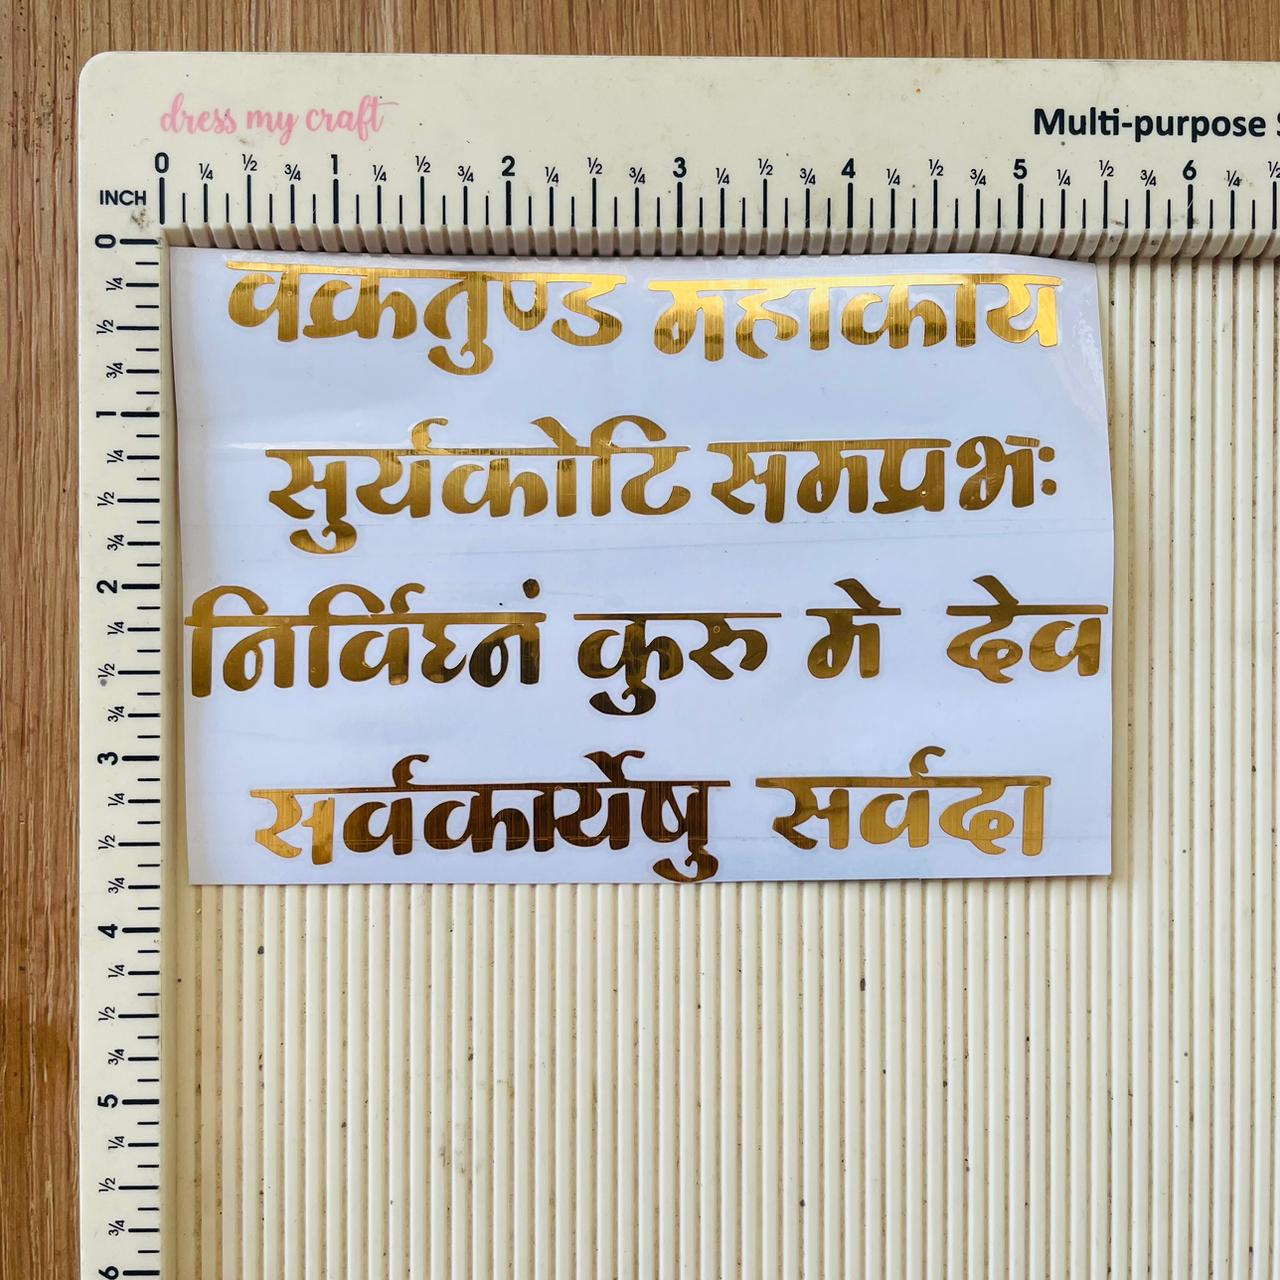 dress my craft
Multi-purpose
0 ¼ ½ ¾ 1 ¼ ½ ¾ 2 ¼ ½ ¾ 3 ¼ ½ ¾ 4 ¼ ½ ¾ 5 ¼ ½ ¾ 6 ¼ ½
INCH
0 ¼ ½ ¾ 1 ¼ ½ ¾ 2 ¼ ½ ¾ 3 ¼ ½ ¾ 4 ¼ ½ ¾ 5 ¼ ½ ¾ 6
वक्रतुण्ड महाकाय
सुर्यकोटि समप्रभः
निर्विघ्नं कुरु मे देव
सर्वकार्येषु सर्वदा